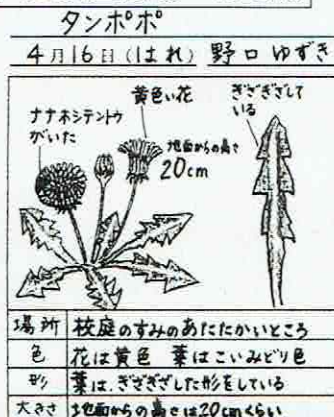 タンポポ
4月16日(はれ) 野口ゆずき
黄色い花
ぎざぎざして
いる
ナナホシテントウ
がいた
地面からの高さ
20cm
場所 校庭のすみのあたたかいところ
色 花は黄色 葉はこいみどり色
形 葉は、ぎざぎざした形をしている
大きさ 地面からの高さは20cmくらい